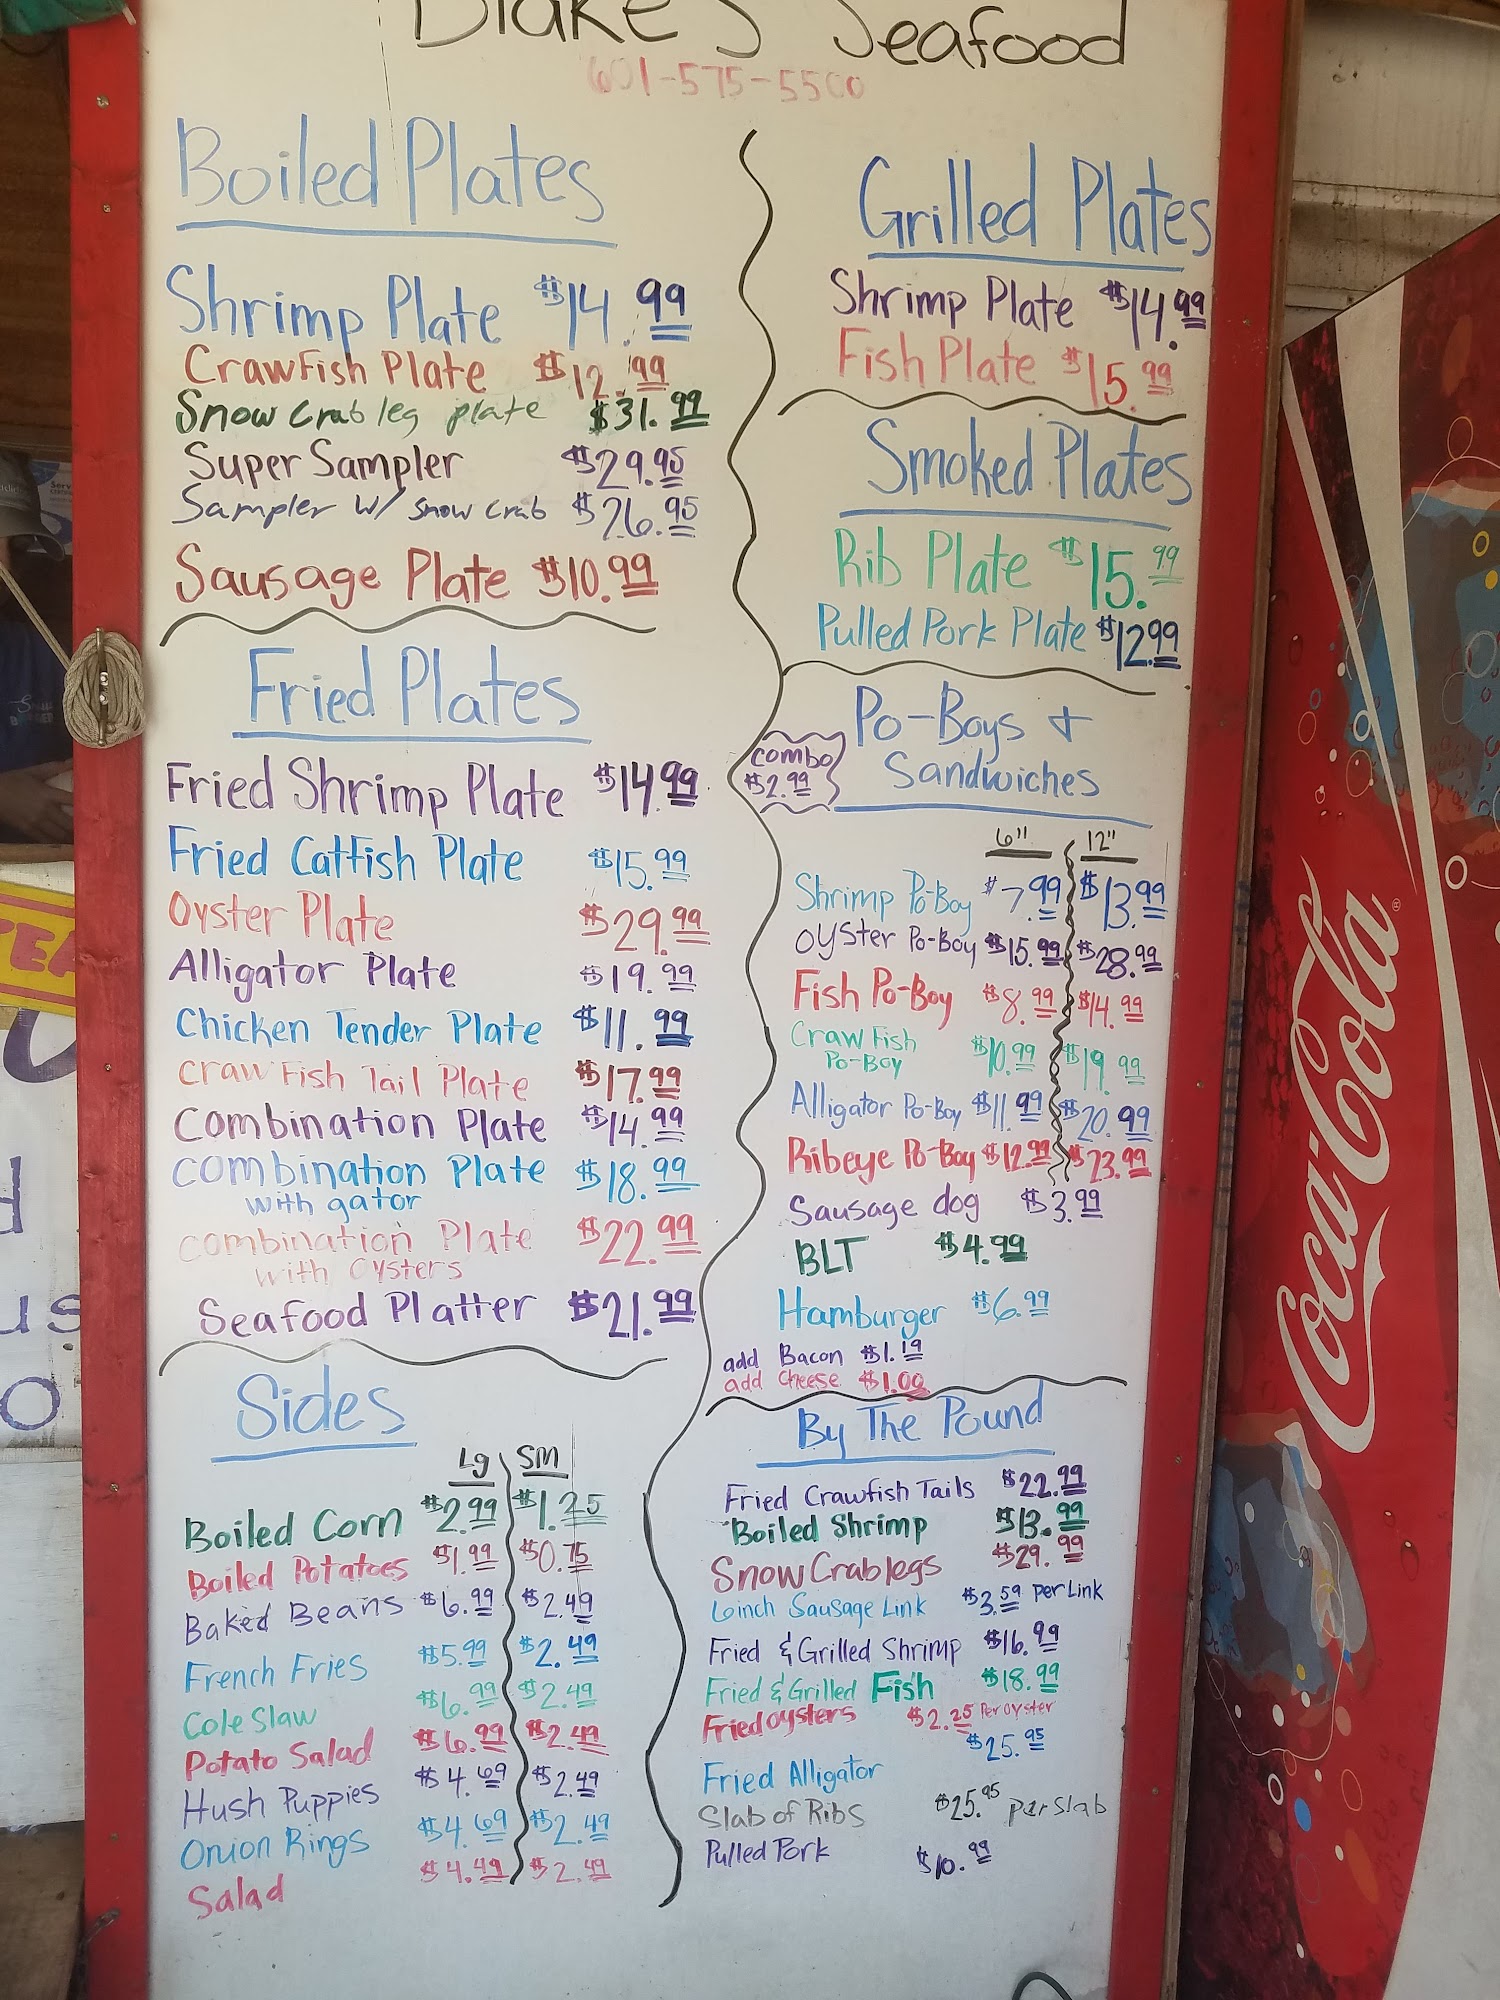 Blake's Seafood
601-575-5500
Boiled Plates
Shrimp Plate $14.99
Crawfish Plate $12.99
Snow Crab leg plate $31.99
Super Sampler $29.95
Sampler w/ snow crab $26.95
Sausage Plate $10.99
Fried Plates
Fried Shrimp Plate $14.99
Fried Catfish Plate $15.99
Oyster Plate $29.99
Alligator Plate $19.99
Chicken Tender Plate $11.99
Crawfish Tail Plate $17.99
Combination Plate $14.99
Combination Plate $18.99
with gator
Combination Plate $22.99
with Oysters
Seafood Platter $21.99
Sides
Lg SM
Boiled Corn $2.99 $1.25
Boiled Potatoes $1.99 $0.75
Baked Beans $6.99 $2.49
French Fries $5.99 $2.49
Cole Slaw $6.99 $2.49
Potato Salad $6.99 $2.49
Hush Puppies $4.69 $2.49
Onion Rings $4.69 $2.49
Salad $4.49 $2.49
Grilled Plates
Shrimp Plate $14.99
Fish Plate $15.99
Smoked Plates
Rib Plate $15.99
Pulled Pork Plate $12.99
Po-Boys +
Sandwiches
combo
$2.99
6" 12"
Shrimp Po-Boy $7.99 $13.99
Oyster Po-Boy $15.99 $28.99
Fish Po-Boy $8.99 $14.99
Craw Fish $10.99 $19.99
Po-Boy
Alligator Po-Boy $11.99 $20.99
Ribeye Po-Boy $12.99 $23.99
Sausage dog $3.99
BLT $4.99
Hamburger $6.99
add Bacon $1.19
add Cheese $1.00
By The Pound
Fried Crawfish Tails $22.99
Boiled Shrimp $13.99
Snow Crab legs $29.99
6inch Sausage Link $3.59 per Link
Fried & Grilled Shrimp $16.99
Fried & Grilled Fish $18.99
Fried oysters $2.25 Per oyster
Fried Alligator $25.95
Slab of Ribs $25.95 per slab
Pulled Pork $10.99
Coca-Cola